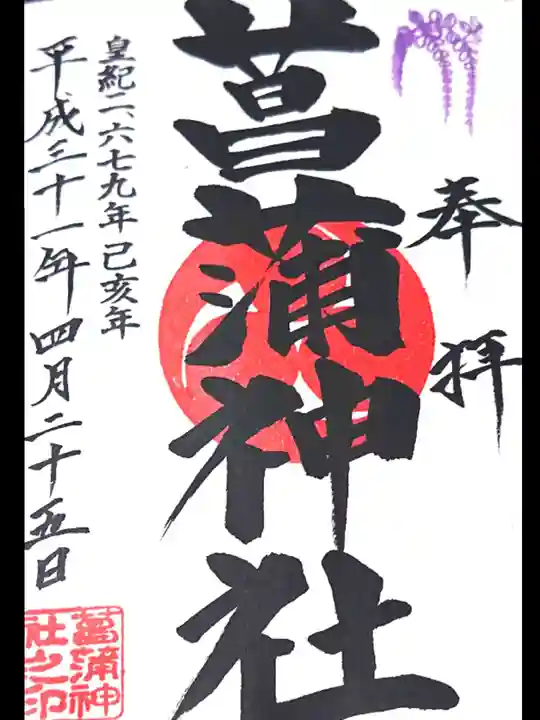 奉拝
菖蒲神社
皇紀二、六七九年己亥年
平成三十一年四月二十五日
菖蒲神
社之印